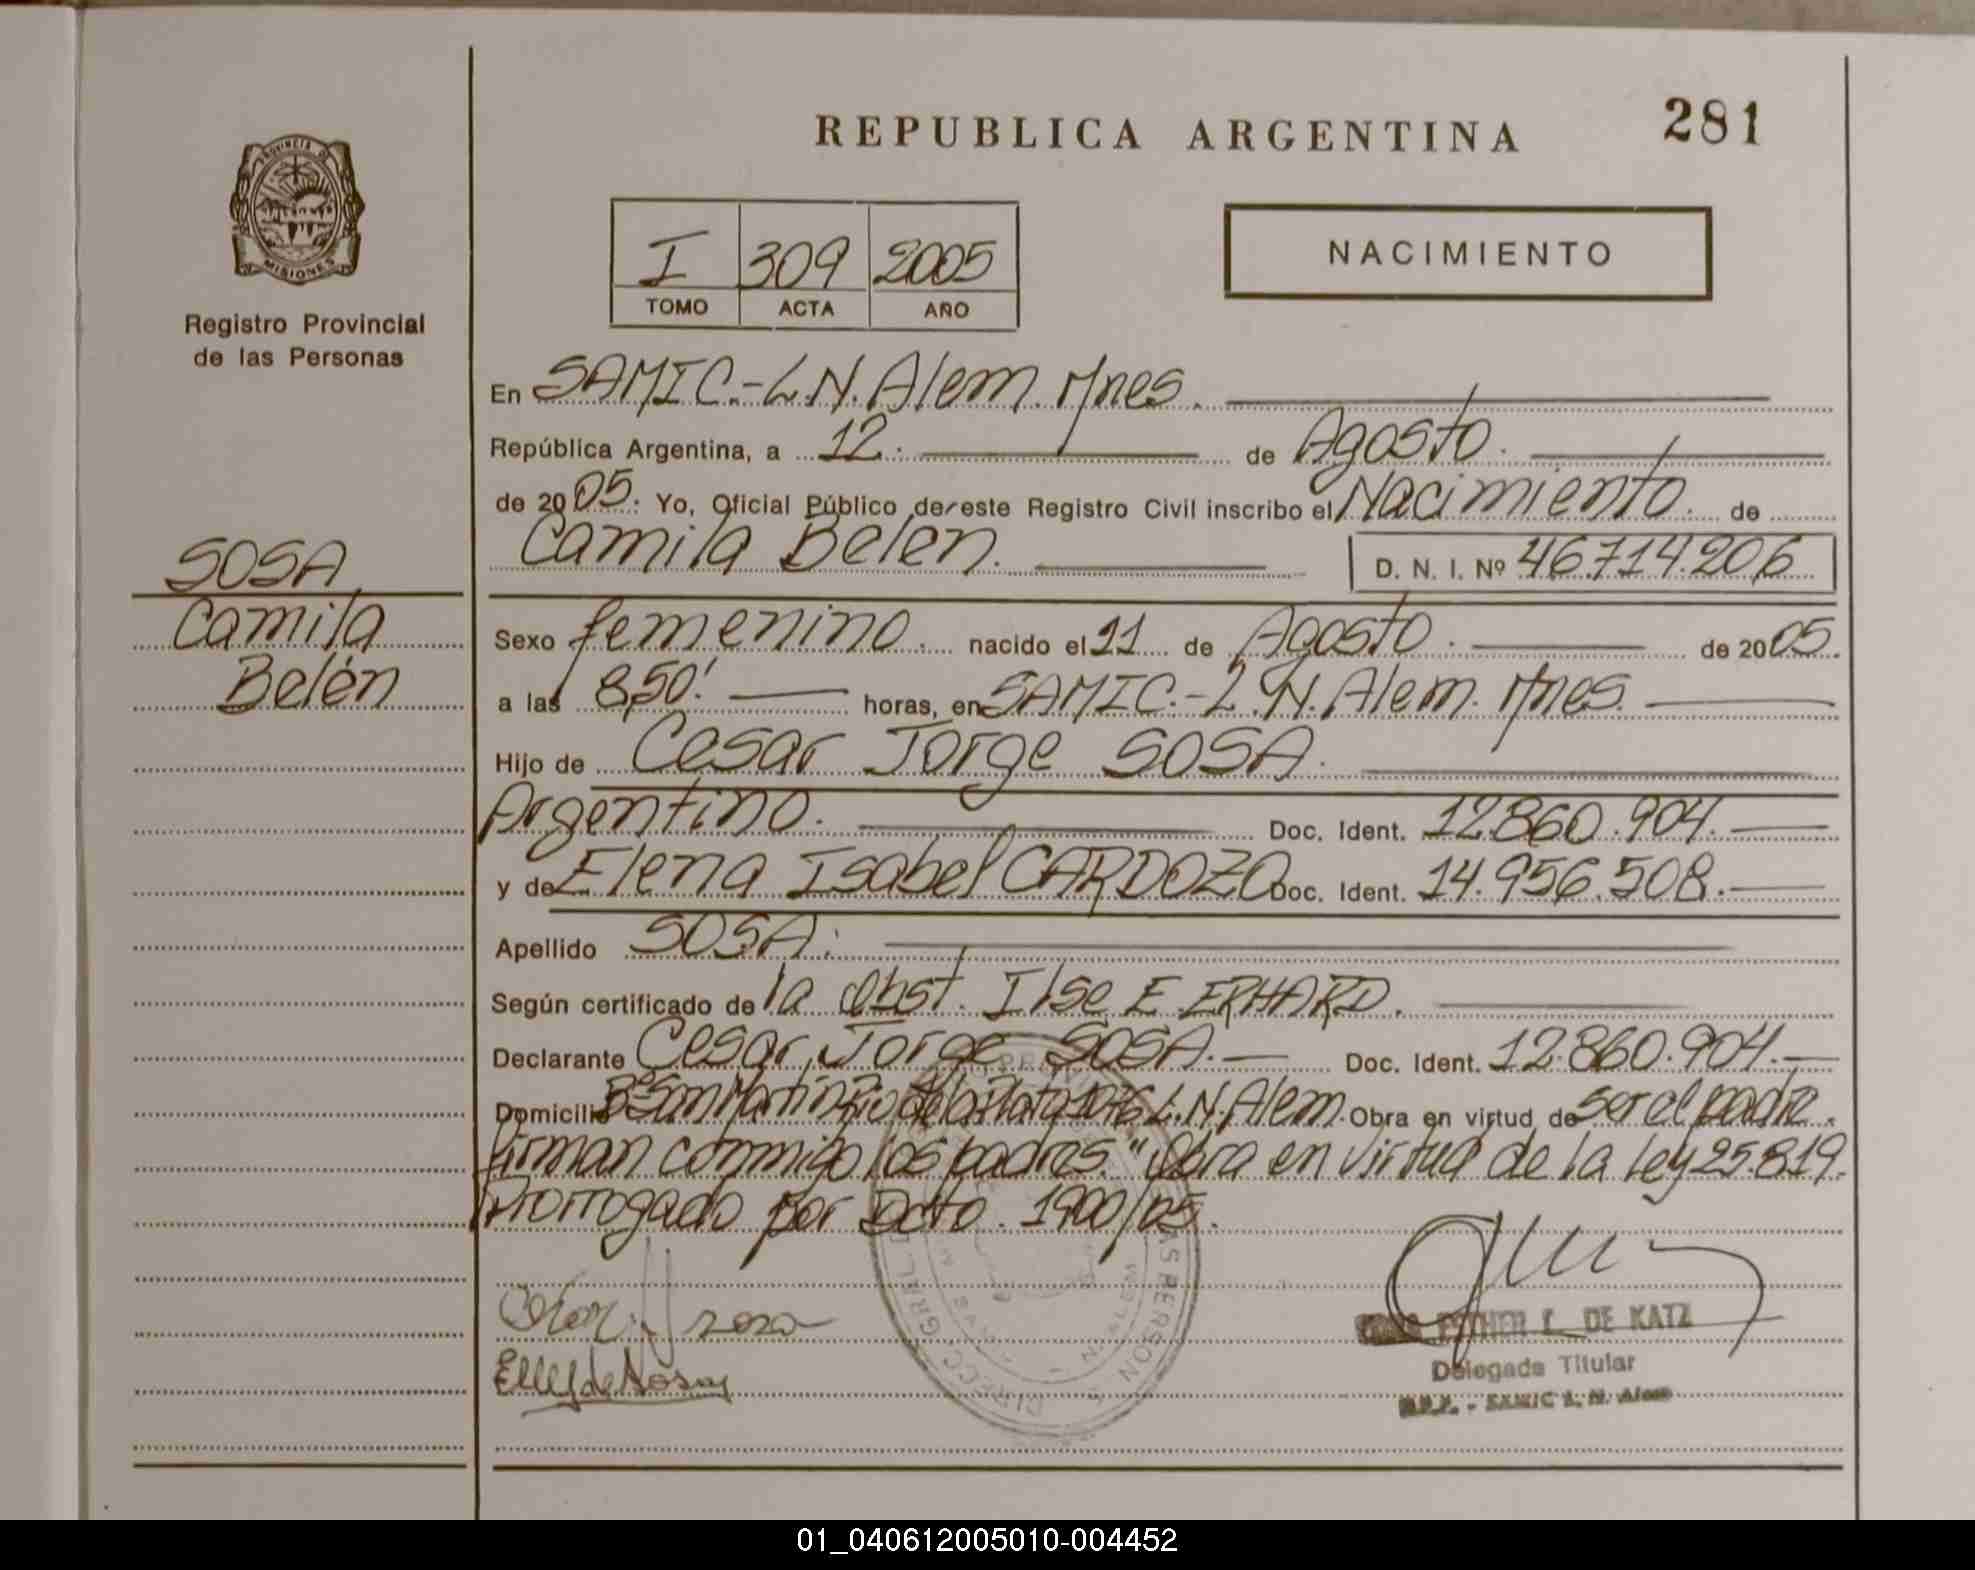 REPUBLICA ARGENTINA
281
PROVINCIA DE
MISIONES
Registro Provincial
de las Personas
I 309 2005
TOMO ACTA AÑO
NACIMIENTO
En SAMIC.-L.N.Alem. Mnes.
República Argentina, a 12. de Agosto.
de 2005. Yo, Oficial Público de este Registro Civil inscribo el Nacimiento. de
Camila Belén.
D. N. I. Nº 46.714.206
SOSA
Camila
Belén
Sexo femenino. nacido el 11 de Agosto. de 2005.
a las 8,50! horas, en SAMIC.-L.N.Alem. Mnes.
Hijo de Cesar Jorge SOSA.
Argentino. Doc. Ident. 12.860.904.
y de Elena Isabel CARDOZO Doc. Ident. 14.956.508.
Apellido SOSA.
Según certificado de la obst. Ilse E. ERHARD.
Declarante Cesar Jorge SOSA. Doc. Ident. 12.860.904.
Domicilio Bº San Martin Rio de la Plata L.N.Alem. Obra en virtud de ser el padre.
firman conmigo los padres. "Obra en virtud de la Ley 25.819.
Prorrogado por Dcto. 1900/05.
ESTHER E. DE KATZ
Delegada Titular
R.P.P. - SAMIC L. N. Alem
01_040612005010-004452